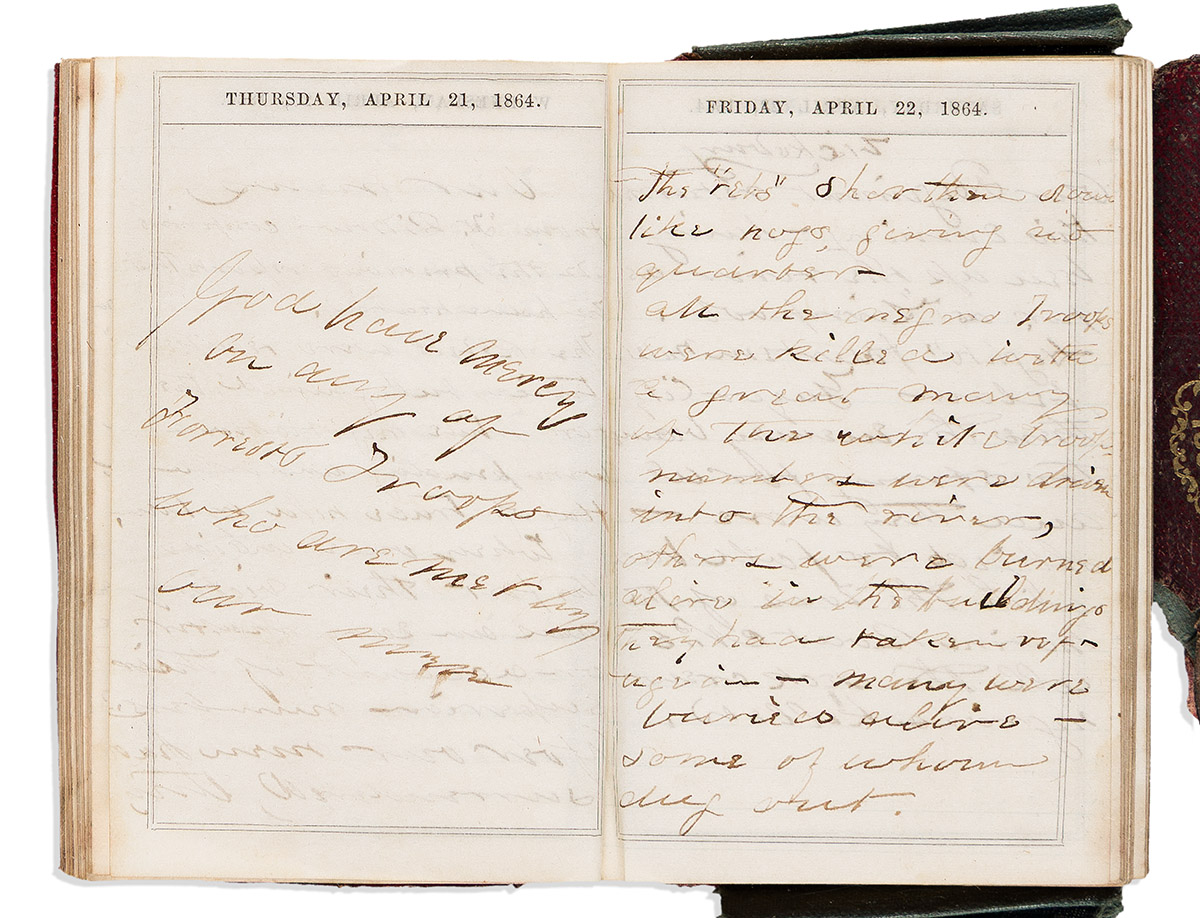 THURSDAY, APRIL 21, 1864.
God have mercy
on any of
Forrests Troops
who are met by
our
FRIDAY, APRIL 22, 1864.
The "rebs" shot them down
like hogs, giving no
quarter
all the negro Troops
were killed with
a great many
of the white troops
numbers were driven
into the river,
others were burned
alive in the buildings
they had taken ref-
uge in – many were
buried alive –
some of whom
dug out.